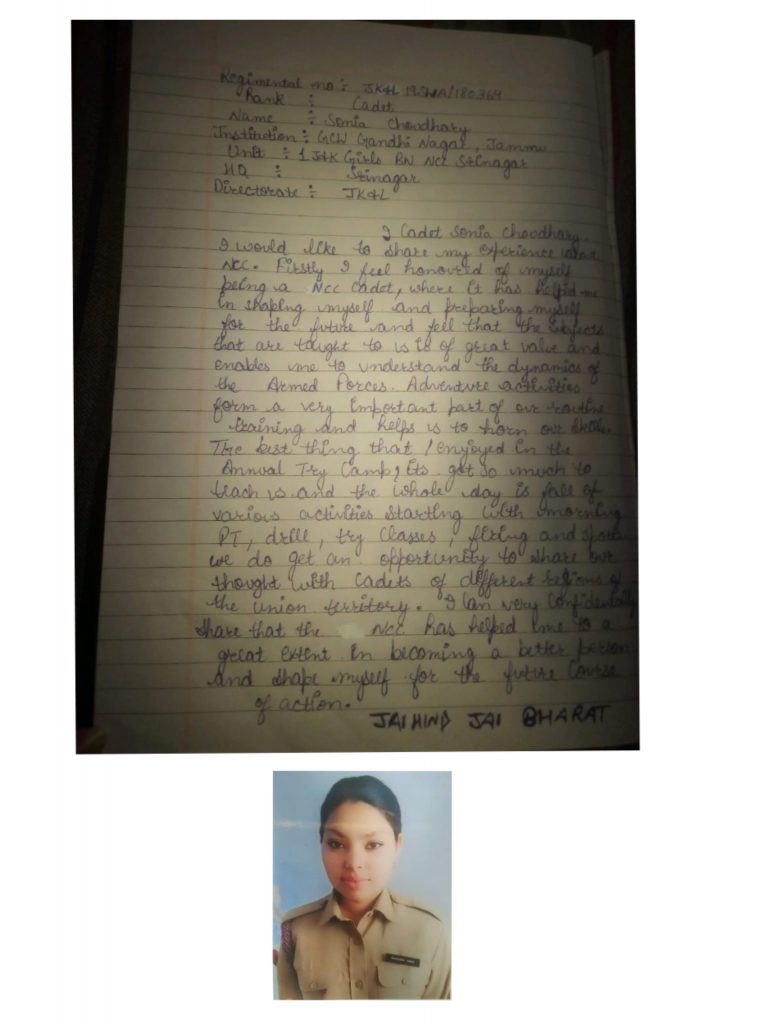 Regimental no :- JK&L 19SWA/180369
Rank :- Cadet
Name :- Sonia Choudhary
Instituction :- GCW Gandhi Nagar, Jammu
Unit :- 1 J&K Girls BN NCC Srinagar
HQ :- Srinagar
Directorate :- JK&L
I Cadet Sonia Choudhary.
I would like to share my experience about
NCC. Firstly I feel honoured of myself
being a NCC cadet, where it has helped me
in shaping myself and preparing myself
for the future and fell that the subjects
that are taught to us is of great value and
enables me to understand the dynamics of
the Armed Forces. Adventure activities
form a very important part of our routine
training and helps us to horn our skills.
The best thing that I enjoyed in the
Annual Try Camp, Its got so much to
teach us and the whole day is full of
various activities starting with morning
PT, drill, try classes, firing and
we do get an opportunity to share our
thought with Cadets of different regions of
the union territory. I can very confidentally
share that the NCC has helped me to a
great extent in becoming a better person
and shape myself for the future Course
of action.
JAI HIND JAI BHARAT